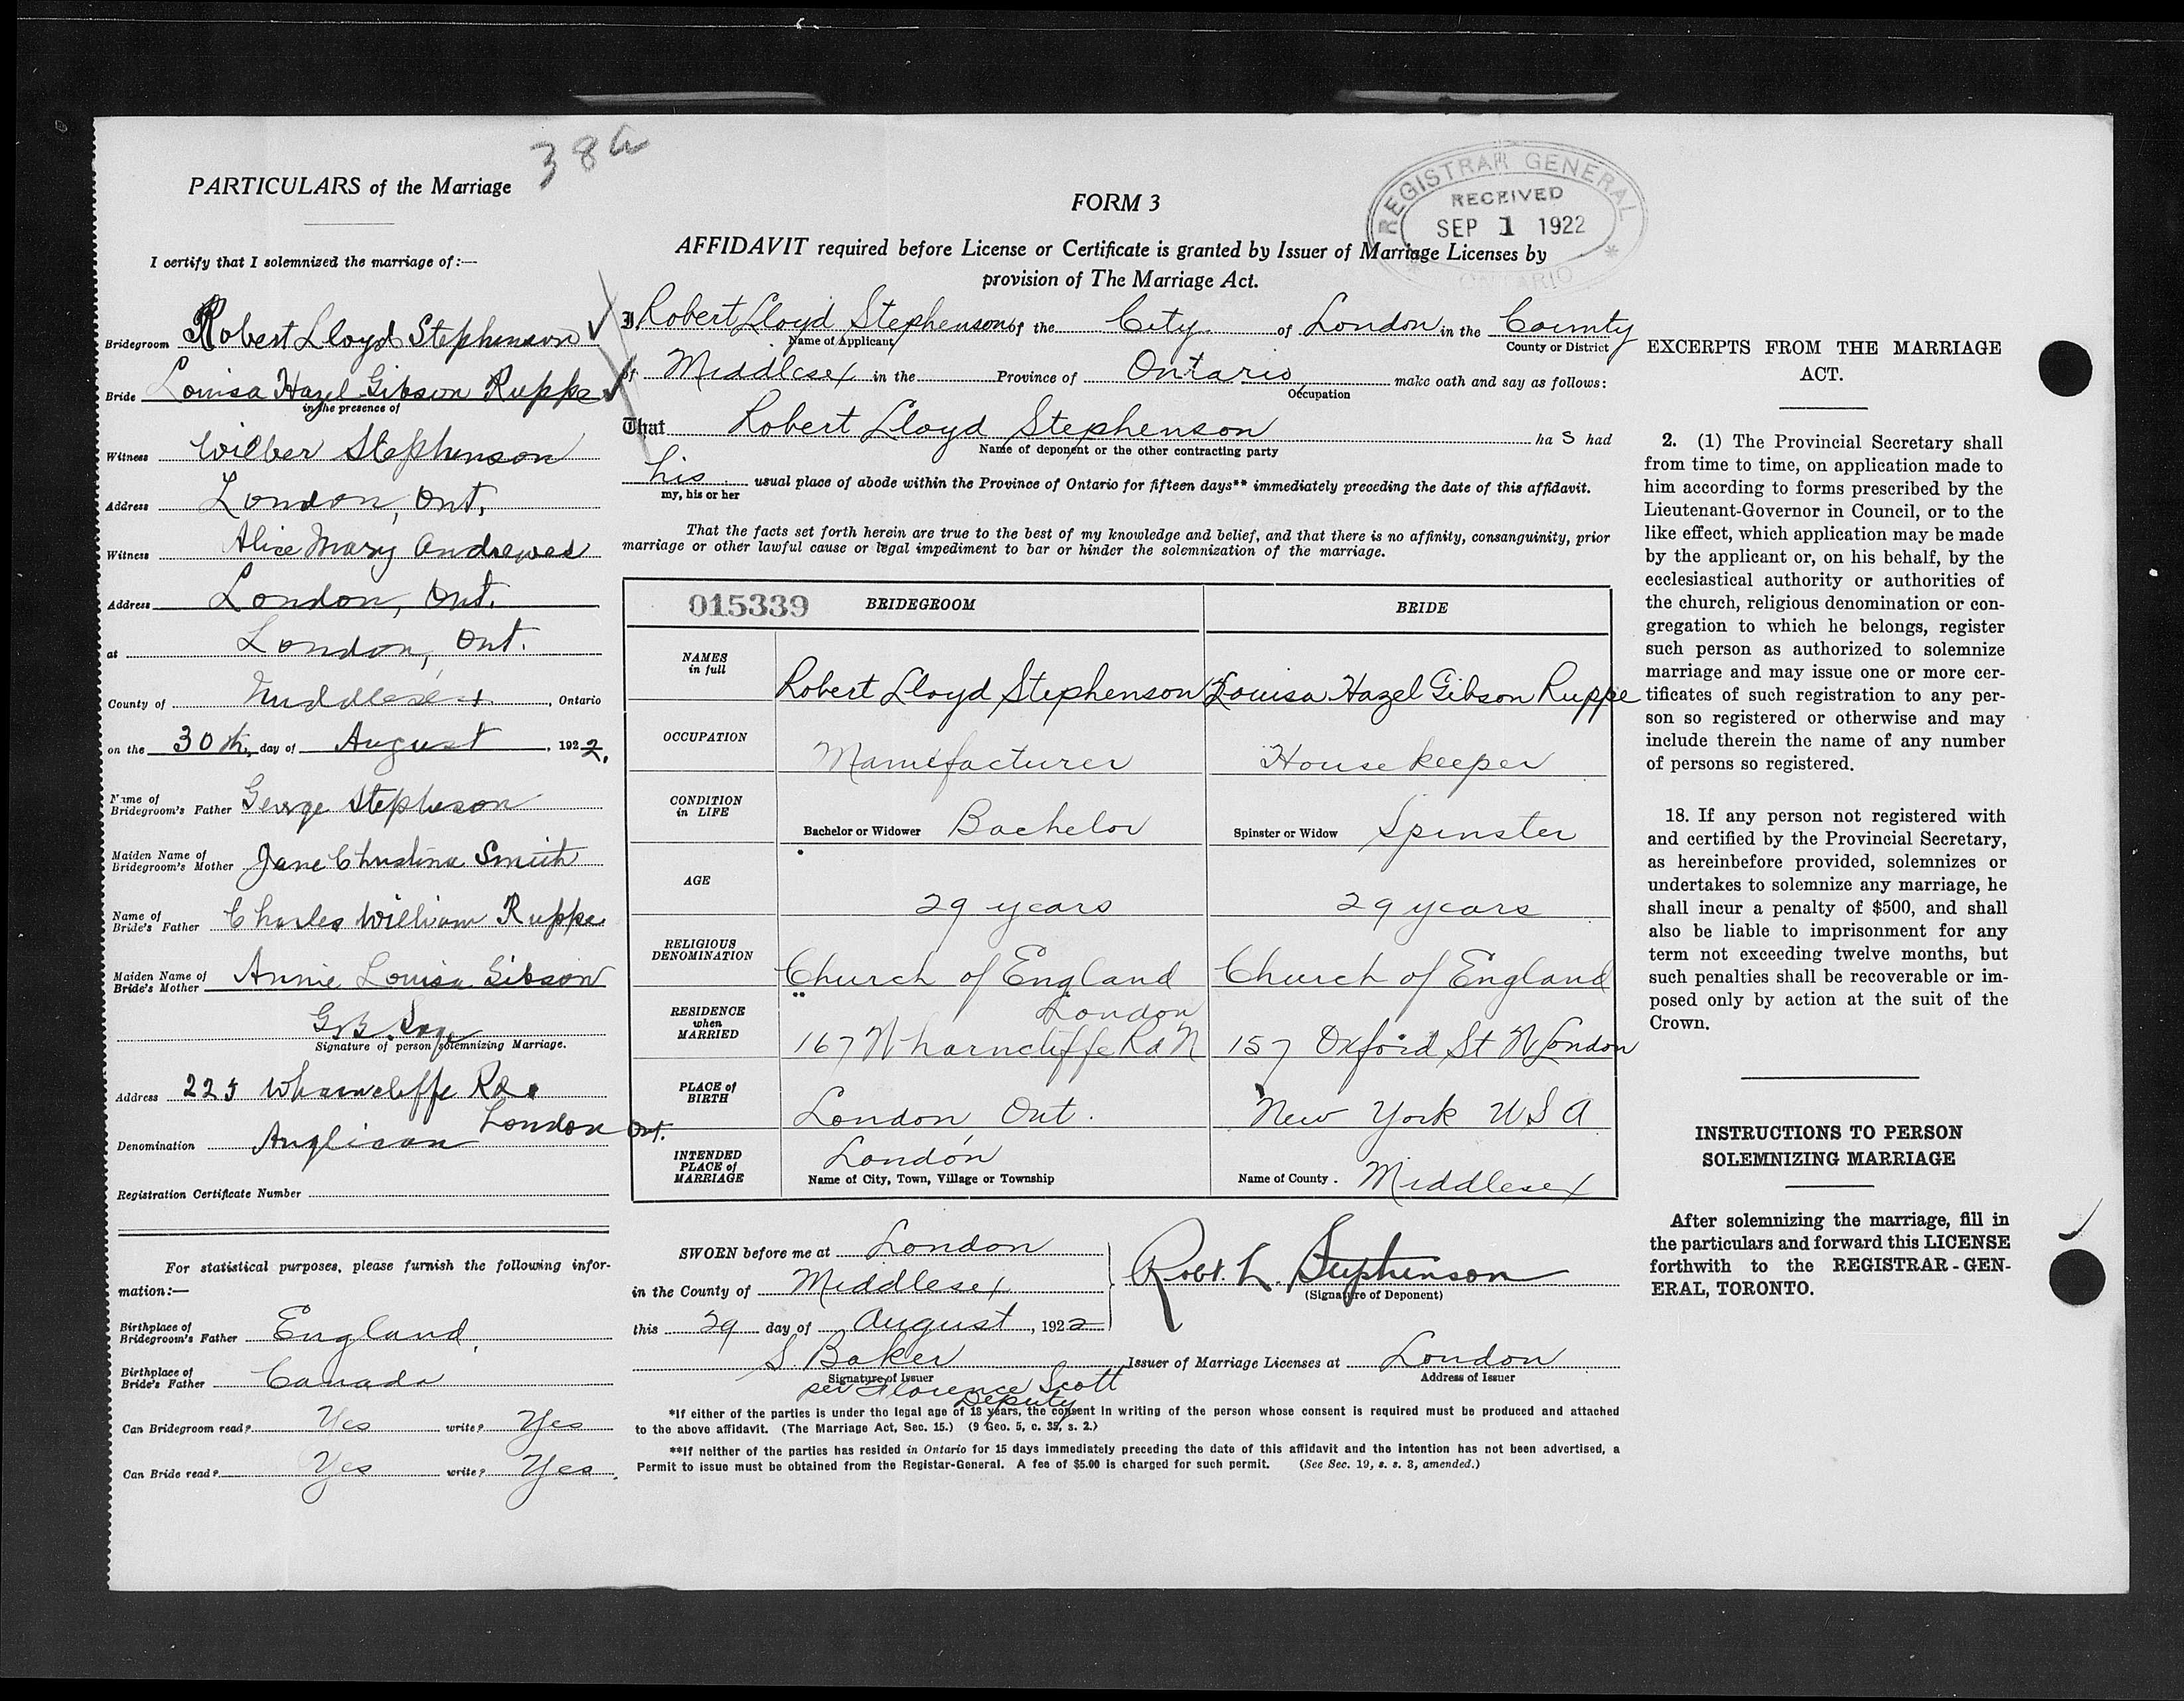 38a
PARTICULARS of the Marriage
I certify that I solemnized the marriage of:—
Bridegroom Robert Lloyd Stephenson
Bride Louisa Hazel Gibson Ruppe
in the presence of
Witness Wilber Stephenson
Address London, Ont,
Witness Alice Mary Andrewes
Address London, Ont.
at London, Ont.
County of Middlesex, Ontario
on the 30th, day of August, 1922.
Name of
Bridegroom's Father George Stepheson
Maiden Name of
Bridegroom's Mother Jane Christina Smith
Name of
Bride's Father Charles William Ruppe
Maiden Name of
Bride's Mother Annie Louisa Gibson
G.B. Sage
Signature of person solemnizing Marriage.
Address 225 Wharncliffe Rd.
London Ont.
Denomination Anglican
Registration Certificate Number
For statistical purposes, please furnish the following infor-
mation:—
Birthplace of
Bridegroom's Father England.
Birthplace of
Bride's Father Canada
Can Bridegroom read? Yes write? Yes
Can Bride read? Yes write? Yes.
FORM 3
REGISTRAR GENERAL
RECEIVED
SEP 1 1922
ONTARIO
AFFIDAVIT required before License or Certificate is granted by Issuer of Marriage Licenses by
provision of The Marriage Act.
I Robert Lloyd Stephenson of the City of London in the County
Name of Applicant County or District
of Middlesex in the Province of Ontario, make oath and say as follows:
Occupation
That Robert Lloyd Stephenson ha s had
Name of deponent or the other contracting party
his usual place of abode within the Province of Ontario for fifteen days** immediately preceding the date of this affidavit.
my, his or her
That the facts set forth herein are true to the best of my knowledge and belief, and that there is no affinity, consanguinity, prior
marriage or other lawful cause or legal impediment to bar or hinder the solemnization of the marriage.
015339 BRIDEGROOM BRIDE
NAMES
in full
Robert Lloyd Stephenson Louisa Hazel Gibson Ruppe
OCCUPATION
Manufacturer Housekeeper
CONDITION
in LIFE
Bachelor or Widower Bachelor Spinster or Widow Spinster
AGE
29 years 29 years
RELIGIOUS
DENOMINATION
Church of England Church of England
RESIDENCE
when
MARRIED
London
167 Wharncliffe Rd N 157 Oxford St W London
PLACE of
BIRTH
London Ont. New York U S A
INTENDED
PLACE of
MARRIAGE
London Middlesex
Name of City, Town, Village or Township Name of County.
SWORN before me at London
in the County of Middlesex
this 29 day of August, 1922
Robt. L. Stephenson
(Signature of Deponent)
S. Baker Issuer of Marriage Licenses at London
Signature of Issuer Address of Issuer
per Florence Scott
Deputy
*If either of the parties is under the legal age of 18 years, the consent in writing of the person whose consent is required must be produced and attached
to the above affidavit. (The Marriage Act, Sec. 15.) (9 Geo. 5, c. 35, s. 2.)
**If neither of the parties has resided in Ontario for 15 days immediately preceding the date of this affidavit and the intention has not been advertised, a
Permit to issue must be obtained from the Registar-General. A fee of $5.00 is charged for such permit. (See Sec. 19, s. s. 3, amended.)
EXCERPTS FROM THE MARRIAGE
ACT.
2. (1) The Provincial Secretary shall
from time to time, on application made to
him according to forms prescribed by the
Lieutenant-Governor in Council, or to the
like effect, which application may be made
by the applicant or, on his behalf, by the
ecclesiastical authority or authorities of
the church, religious denomination or con-
gregation to which he belongs, register
such person as authorized to solemnize
marriage and may issue one or more cer-
tificates of such registration to any per-
son so registered or otherwise and may
include therein the name of any number
of persons so registered.
18. If any person not registered with
and certified by the Provincial Secretary,
as hereinbefore provided, solemnizes or
undertakes to solemnize any marriage, he
shall incur a penalty of $500, and shall
also be liable to imprisonment for any
term not exceeding twelve months, but
such penalties shall be recoverable or im-
posed only by action at the suit of the
Crown.
INSTRUCTIONS TO PERSON
SOLEMNIZING MARRIAGE
After solemnizing the marriage, fill in
the particulars and forward this LICENSE
forthwith to the REGISTRAR-GEN-
ERAL, TORONTO.